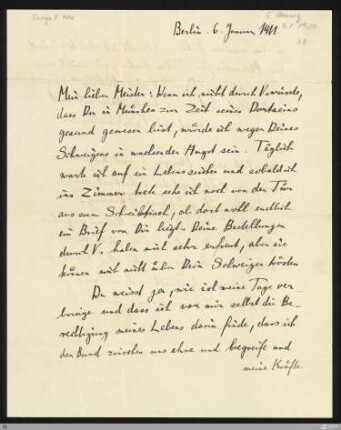 Berlin. 6. Januar 1911
Mein lieber Meister: Wenn ich nicht durch V. wüsste,
dass Du in München zur Zeit seines Dortseins
gesund gewesen bist, würde ich wegen Deines
Schweigens in wachsender Angst sein. Täglich
warte ich auf ein Lebenszeichen und sobald ich
ins Zimmer trete sehe ich noch von der Tür
aus zum Schreibtisch, ob dort wohl endlich
ein Brief von Dir liegt. Deine Bestellungen
durch V. haben mich sehr erfreut, aber sie
können mich nicht über Dein Schweigen trösten
Du weisst ja, wie ich meine Tage ver-
bringe und dass ich vor mir selbst die Be-
rechtigung meines Lebens darin finde, dass ich
den Bund zwischen uns ehre und begreife und
meine Kräfte